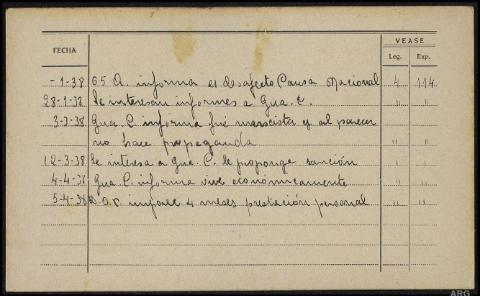 VEASE
FECHA Leg. Exp.
-1-38 65 A. informa es desafecto Causa Nacional 4 114
28-1-38 Se interesan informes a Gua. C. " "
3-3-38 Gua. C informa fué marxista y al parecer " "
no hace propaganda
12-3-38 Se interesa a Gua. C. le proponga sanción " "
4-4-38 Gua. C. informa vive económicamente " "
5-4-38 impone 4 meses prestación personal " "
ARG